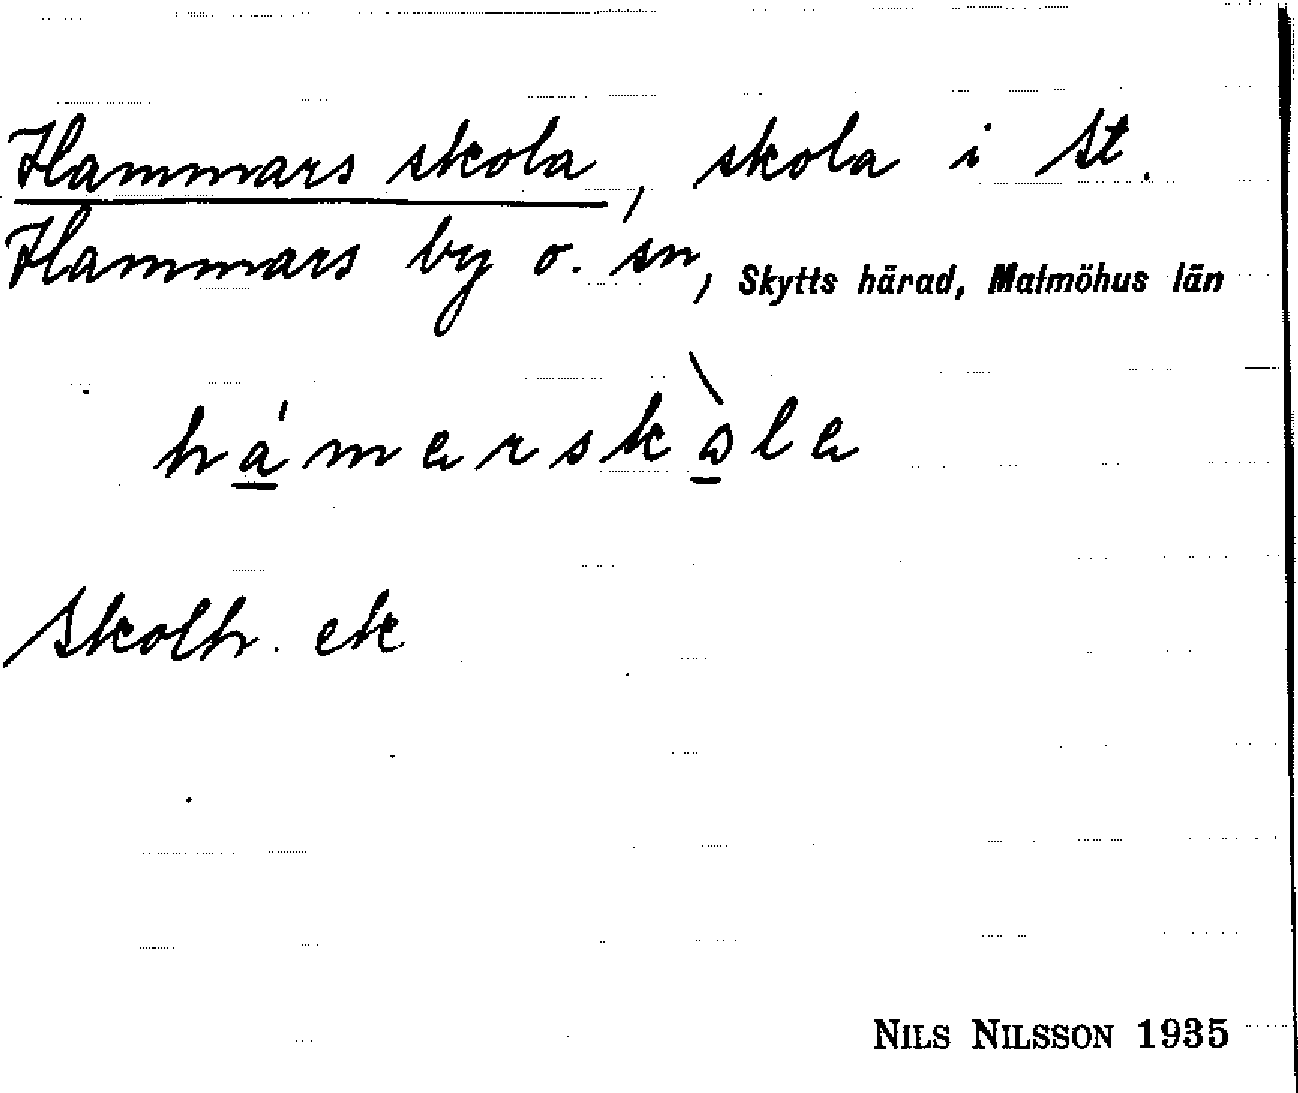 Hammars skola, skola i St.
Hammars by o. sn, Skytts härad, Malmöhus län
hámarskòla
Skolh. ek
NILS NILSSON 1935